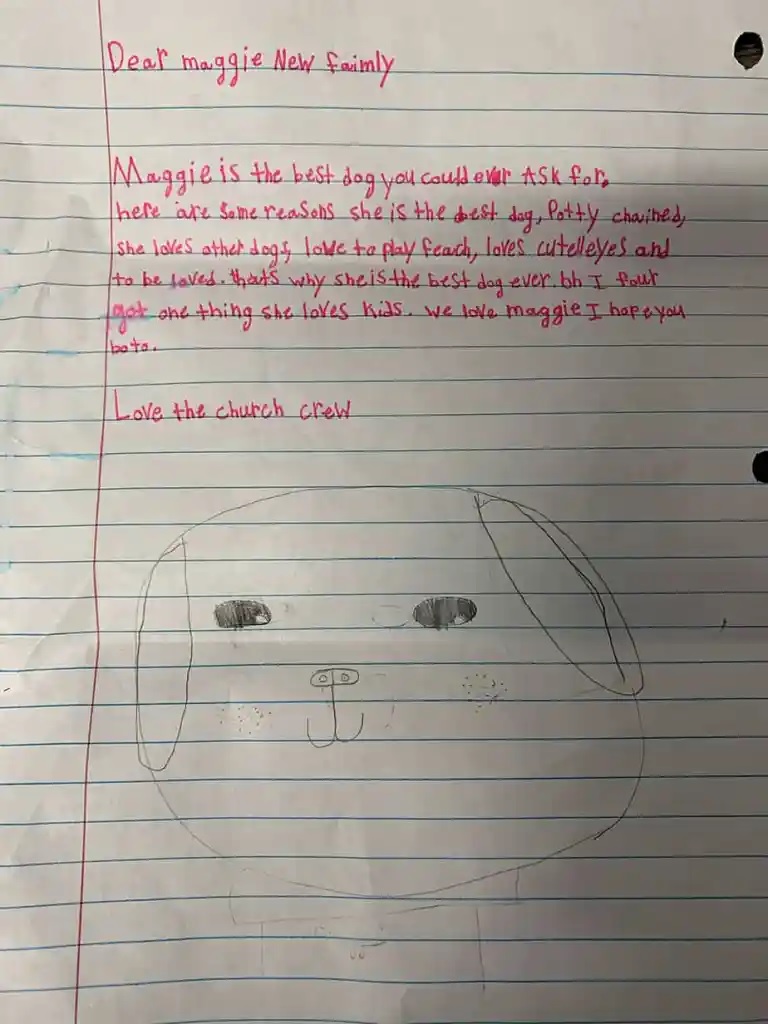 Dear maggie New faimly
Maggie is the best dog you could ever ASK for,
here are some reasons she is the best dog, Potty chained,
she loves other dogs, love to play feach, loves cutelleyes and
to be loved. thats why she is the best dog ever. bh I four
got one thing she loves kids. we love maggie I hope you
boto.
Love the church crew